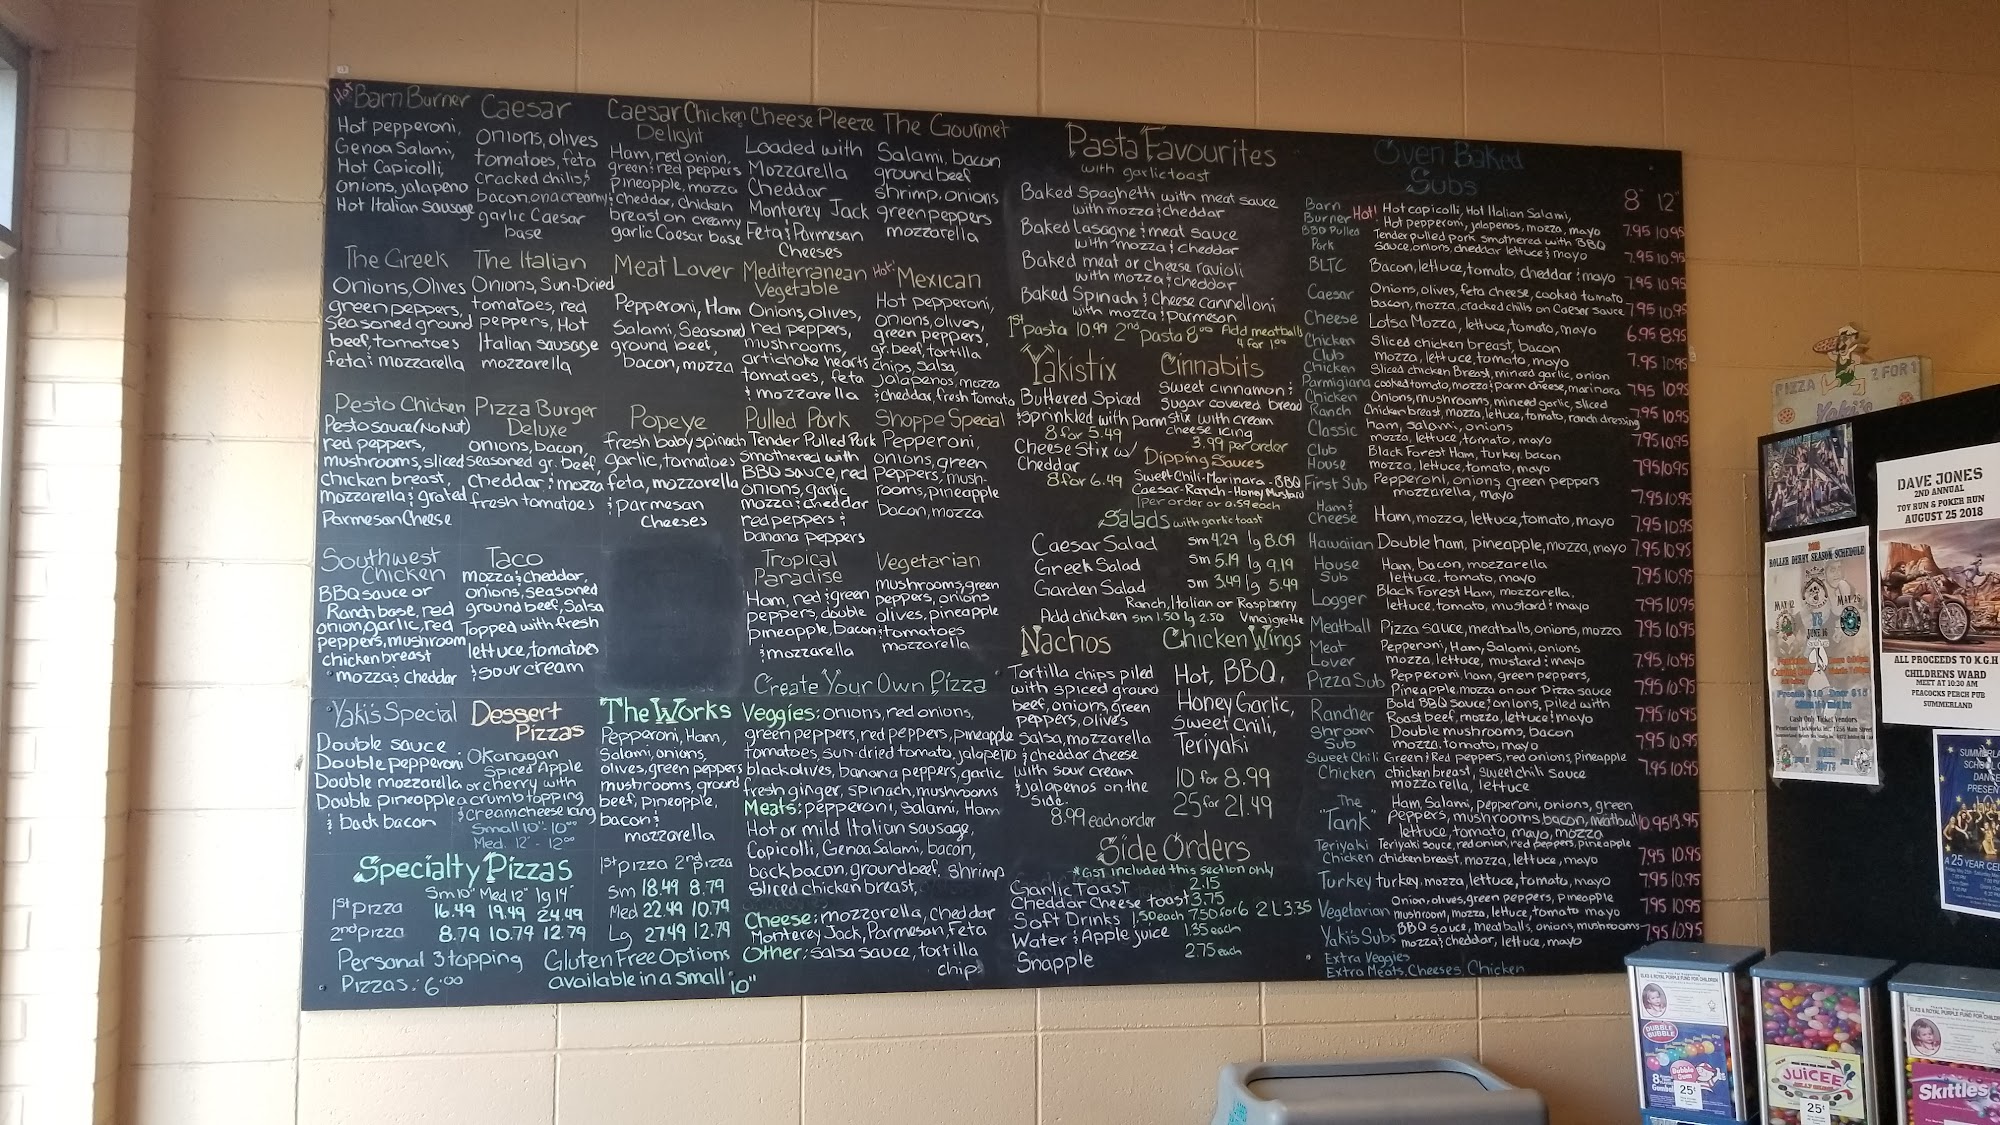 Hot Barn Burner
Hot pepperoni,
Genoa Salami,
Hot Capicolli,
onions, jalapeno
Hot Italian Sausage
Caesar
Onions, olives
tomatoes, feta
cracked chilis, &
bacon, on a creamy
garlic Caesar
base
Caesar Chicken
Delight
Ham, red onion,
green & red peppers
pineapple, mozza
& cheddar, chicken
breast on creamy
garlic Caesar base
Cheese Pleeze
Loaded with
Mozzarella
Cheddar
Monterey Jack
Feta & Parmesan
Cheeses
The Gourmet
Salami, bacon
ground beef
shrimp, onions
green peppers
mozzarella
The Greek
Onions, Olives
green peppers,
Seasoned ground
beef, tomatoes
feta & mozzarella
The Italian
Onions, Sun-Dried
tomatoes, red
peppers, Hot
Italian sausage
mozzarella
Meat Lover
Pepperoni, Ham
Salami, Seasoned
ground beef,
bacon, mozza
Mediterranean
Vegetable
Onions, olives,
red peppers,
mushrooms,
artichoke hearts
tomatoes, feta
& mozzarella
Hot! Mexican
Hot pepperoni,
onions, olives,
green peppers,
gr. beef, tortilla
chips, salsa,
jalapenos, mozza
& cheddar, fresh tomato
Pesto Chicken
Pesto sauce (No Nut)
red peppers,
mushrooms, sliced
chicken breast,
mozzarella & grated
Parmesan Cheese
Pizza Burger
Deluxe
onions, bacon,
seasoned gr. beef,
Cheddar & mozza
fresh tomatoes
Popeye
fresh baby spinach
garlic, tomatoes
feta, mozzarella
& parmesan
Cheeses
Pulled Pork
Tender Pulled Pork
smothered with
BBQ sauce, red
onions, garlic
mozza & cheddar
red peppers &
banana peppers
Shoppe Special
Pepperoni,
onions, green
Peppers, mush-
rooms, pineapple
bacon, mozza
Southwest
Chicken
BBQ sauce or
Ranch base, red
onion, garlic, red
peppers, mushroom
chicken breast
mozza & cheddar
Taco
mozza & cheddar,
onions, seasoned
ground beef, Salsa
Topped with fresh
lettuce, tomatoes
& sour cream
Tropical
Paradise
Ham, red & green
peppers, double
pineapple, bacon
& mozzarella
Vegetarian
mushrooms, green
peppers, onions
olives, pineapple
& tomatoes
mozzarella
Yaki's Special
Double sauce
Double pepperoni
Double mozzarella
Double pineapple
& back bacon
Dessert
Pizzas
Okanagan
Spiced Apple
or cherry with
a crumb topping
& cream cheese icing
Small 10" - 10.00
Med. 12" - 12.00
The Works
Pepperoni, Ham,
Salami, onions,
olives, green peppers
mushrooms, ground
beef, pineapple,
bacon &
mozzarella
1st pizza 2nd pizza
Sm 18.49 8.79
Med 22.49 10.79
Lg 27.49 12.79
Specialty Pizzas
Sm 10" Med 12" lg 14"
1st Pizza 16.49 19.49 24.49
2nd Pizza 8.79 10.79 12.79
Personal 3 topping
Pizzas: 6.00
Gluten Free Options
available in a small 10"
Create Your Own Pizza
Veggies: onions, red onions,
green peppers, red peppers, pineapple
tomatoes, sun-dried tomato, jalapeño
black olives, banana peppers, garlic
fresh ginger, spinach, mushrooms
Meats: pepperoni, Salami, Ham
Hot or mild Italian sausage,
Capicolli, Genoa Salami, bacon,
back bacon, ground beef, shrimp
Sliced chicken breast,
Cheese: mozzarella, Cheddar
Monterey Jack, Parmesan, Feta
Other: salsa sauce, tortilla
chip
Pasta Favourites
with garlic toast
Baked Spaghetti with meat sauce
with mozza & cheddar
Baked Lasagne & meat sauce
with mozza & cheddar
Baked meat or cheese ravioli
with mozza & cheddar
Baked Spinach & Cheese cannelloni
with mozza & Parmesan
1st pasta 10.99 2nd pasta 8.00 Add meatballs
4 for 1.00
Yakistix
Buttered Spiced
& sprinkled with parm
8 for 5.49
Cheese Stix w/
Cheddar
8 for 6.49
Cinnabits
Sweet cinnamon &
sugar covered bread
stix with cream
cheese icing
3.99 per order
Dipping Sauces
Sweet Chili-Marinara-BBQ
Caesar-Ranch-Honey Mustard
1 per order or 0.59 each
Salads with garlic toast
Caesar Salad sm 4.29 lg 8.09
Greek Salad sm 5.19 lg 9.19
Garden Salad sm 3.49 lg 5.49
Ranch, Italian or Raspberry
Vinaigrette
Add chicken sm 1.50 lg 2.50
Nachos
Tortilla chips piled
with spiced ground
beef, onions, green
peppers, olives
salsa, mozzarella
& cheddar cheese
with sour cream
& jalapenos on the
side.
8.99 each order
Chicken Wings
Hot, BBQ,
Honey Garlic,
sweet Chili,
Teriyaki
10 for 8.99
25 for 21.49
Side Orders
*GST included this section only
Garlic Toast 2.15
Cheddar Cheese toast 3.75
Soft Drinks 1.50 each 7.50 for 6 2L 3.35
Water & Apple juice 1.35 each
Snapple 2.75 each
Oven Baked
Subs
8" 12"
Barn Burner Hot! Hot capicolli, Hot Italian Salami,
Hot pepperoni, jalapenos, mozza, mayo 7.95 10.95
BBQ Pulled Pork Tender pulled pork smothered with BBQ
sauce, onions, cheddar lettuce & mayo 7.95 10.95
BLTC Bacon, lettuce, tomato, cheddar & mayo 7.95 10.95
Caesar Onions, olives, feta cheese, cooked tomato
bacon, mozza, cracked chilis on Caesar sauce 7.95 10.95
Cheese Lotsa Mozza, lettuce, tomato, mayo 6.95 8.95
Chicken Club Sliced chicken breast, bacon
mozza, lettuce, tomato, mayo 7.95 10.95
Chicken Parmigiana Sliced chicken Breast, minced garlic, onion
cooked tomato, mozza & parm cheese, marinara 7.95 10.95
Chicken Ranch Onions, mushrooms, minced garlic, sliced
Chicken breast, mozza, lettuce, tomato, ranch dressing 7.95 10.95
Classic ham, salami, onions
mozza, lettuce, tomato, mayo 7.95 10.95
Club House Black Forest Ham, turkey, bacon
mozza, lettuce, tomato, mayo 7.95 10.95
First Sub Pepperoni, onions, green peppers
mozzarella, mayo 7.95 10.95
Ham & Cheese Ham, mozza, lettuce, tomato, mayo 7.95 10.95
Hawaiian Double ham, pineapple, mozza, mayo 7.95 10.95
House Sub Ham, bacon, mozzarella
lettuce, tomato, mayo 7.95 10.95
Logger Black Forest Ham, mozzarella,
lettuce, tomato, mustard & mayo 7.95 10.95
Meatball Pizza sauce, meatballs, onions, mozza 7.95 10.95
Meat Lover Pepperoni, Ham, Salami, onions
mozza, lettuce, mustard & mayo 7.95 10.95
Pizza Sub Pepperoni, ham, green peppers,
Pineapple, mozza on our Pizza sauce 7.95 10.95
Rancher Bold BBQ sauce & onions, piled with
Roast beef, mozza, lettuce & mayo 7.95 10.95
Shroom Sub Double mushrooms, bacon
mozza, tomato, mayo 7.95 10.95
Sweet Chili Chicken Green & Red peppers, red onions, pineapple
chicken breast, sweet chili sauce
mozzarella, lettuce 7.95 10.95
The "Tank" Ham, Salami, pepperoni, onions, green
peppers, mushrooms, bacon, meatball
lettuce, tomato, mayo, mozza 10.95 13.95
Teriyaki Chicken Teriyaki sauce, red onion, red peppers, pineapple
chicken breast, mozza, lettuce, mayo 7.95 10.95
Turkey turkey, mozza, lettuce, tomato, mayo 7.95 10.95
Vegetarian Onion, olives, green peppers, pineapple
mushroom, mozza, lettuce, tomato mayo 7.95 10.95
Yaki's Subs BBQ sauce, meatballs, onions, mushrooms
mozza & cheddar, lettuce, mayo 7.95 10.95
Extra Veggies
Extra Meats, Cheeses, Chicken
PIZZA 2 FOR 1
Yaki's
DAVE JONES
2ND ANNUAL
TOY RUN & POKER RUN
AUGUST 25 2018
ALL PROCEEDS TO K.G.H
CHILDRENS WARD
MEET AT 10:30 AM
PEACOCKS PERCH PUB
SUMMERLAND
ROLLER DERBY SEASON SCHEDULE
MAY 12
MAY 26
JUNE 16
Cash Only Ticket Vendors
SUMMERLA
SCHOOL O
DANCE
PRESEN
A 25 YEAR CEL
ELKS & ROYAL PURPLE FUND FOR CHILDREN
DUBBLE BUBBLE
25¢
JUICEE
25¢
ELKS & ROYAL PURPLE FUND FOR CHILDR
Skittles